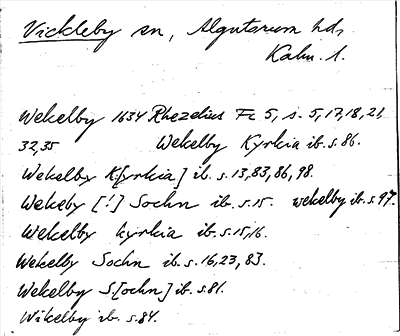 Vickleby sn, Algutsrum hd,
Kalm. l.
Wekelby 1634 Rhezelius Fc 5, s. 5, 17, 18, 21,
32, 35 Wekelby Kyrkia ib. s. 86.
Wekelby K[yrkia] ib. s. 13, 83, 86, 98.
Wekeby [!] Sochn ib. s. 15. wekelby ib. s. 97.
Wekelby kyrkia ib. s. 15, 16.
Wekelby Sochn ib. s. 16, 23, 83.
Wekelby S[ochn] ib. s. 81.
Wikelby ib. s. 84.